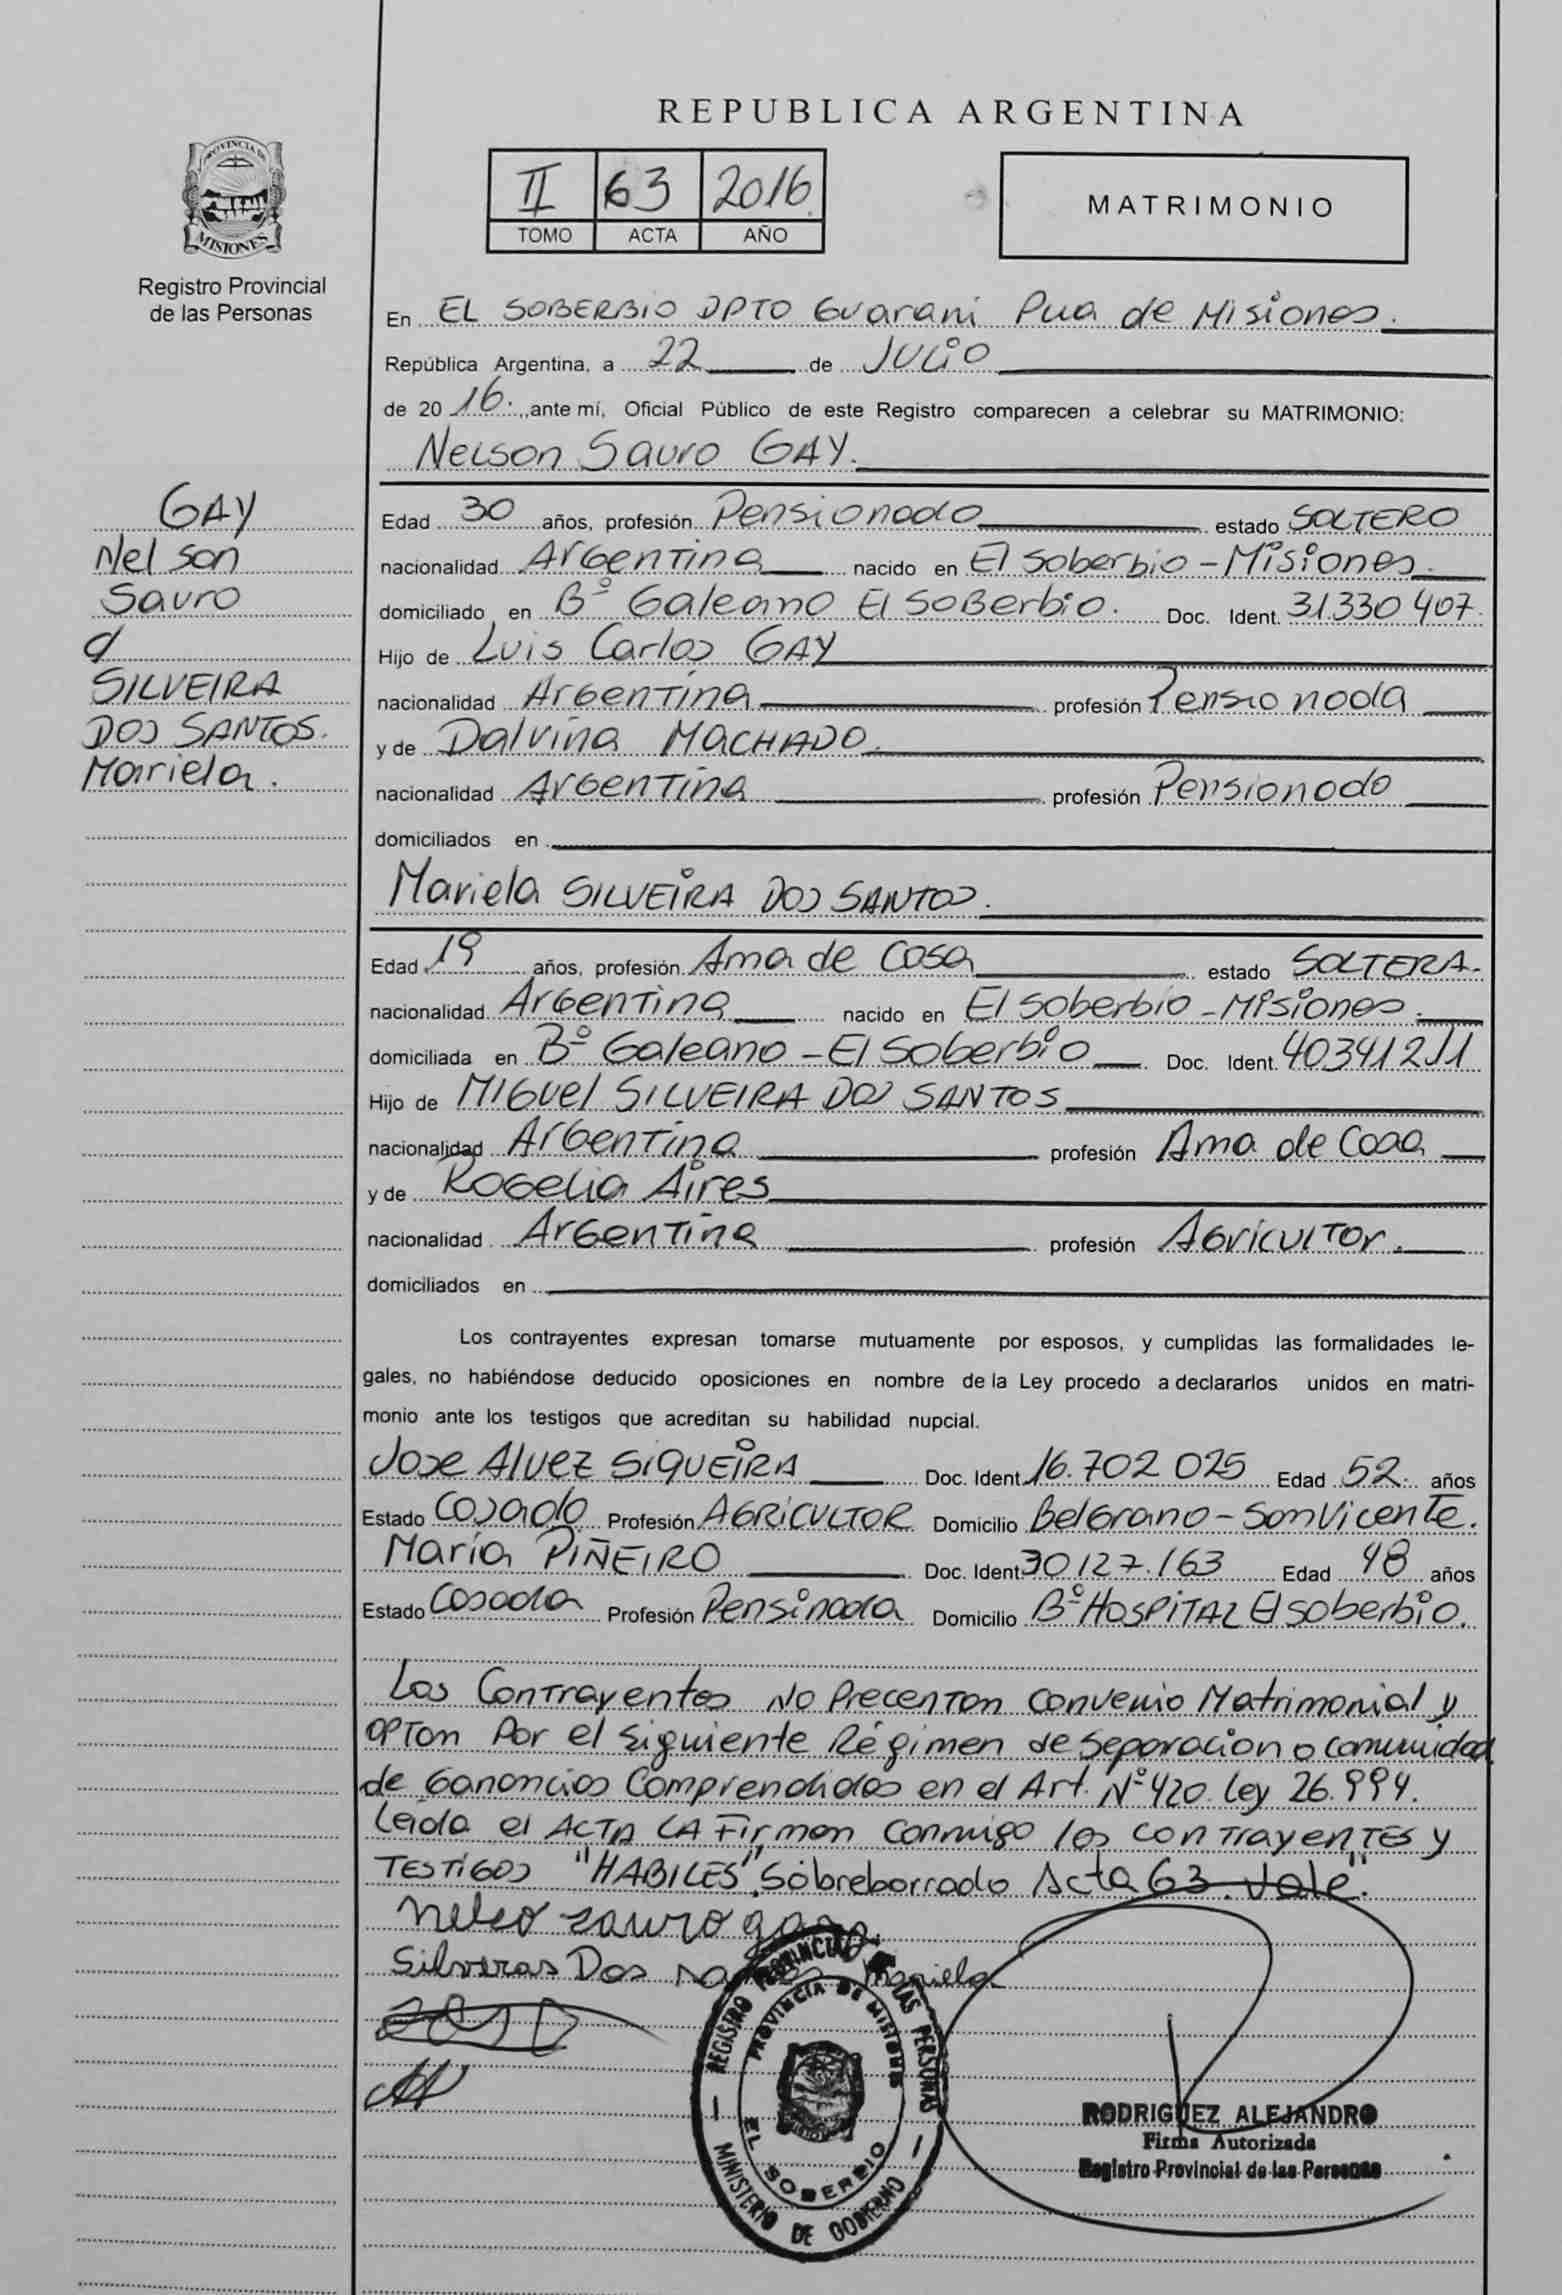 REPUBLICA ARGENTINA
PROVINCIA DE
MISIONES
Registro Provincial
de las Personas
II 63 2016
TOMO ACTA AÑO
MATRIMONIO
En EL SOBERBIO DPTO Guarani Pua de Misiones.
República Argentina, a 22 de JULIO
de 20 16. ante mí, Oficial Público de este Registro comparecen a celebrar su MATRIMONIO:
Nelson Sauro GAY.
GAY
Nelson
Sauro
SILVEIRA
DOS SANTOS.
Mariela.
Edad 30 años, profesión Pensionado estado SOLTERO
nacionalidad Argentina nacido en El Soberbio - Misiones.
domiciliado en Bº Galeano El Soberbio. Doc. Ident. 31.330 407.
Hijo de Luis Carlos GAY
nacionalidad Argentina profesión Pensionada
y de Dalvina MACHADO.
nacionalidad Argentina profesión Pensionado
domiciliados en
Mariela SILVEIRA DOS SANTOS.
Edad 19 años, profesión Ama de Casa estado SOLTERA.
nacionalidad Argentina nacido en El Soberbio - Misiones.
domiciliada en Bº Galeano - El Soberbio Doc. Ident.
Hijo de Miguel SILVEIRA DOS SANTOS
nacionalidad Argentina profesión Ama de Casa
y de Rogelia Aires
nacionalidad Argentina profesión Agricultor.
domiciliados en
Los contrayentes expresan tomarse mutuamente por esposos, y cumplidas las formalidades le-
gales, no habiéndose deducido oposiciones en nombre de la Ley procedo a declararlos unidos en matri-
monio ante los testigos que acreditan su habilidad nupcial.
Jose Alvez SIQUEIRA Doc. Ident. 16.702 025 Edad 52. años
Estado Casado Profesión AGRICULTOR Domicilio Belgrano - San Vicente.
Maria PIÑEIRO Doc. Ident. 30127.163 Edad 48 años
Estado Casada Profesión Pensinada Domicilio Bº HOSPITAL El Soberbio.
Los Contrayentes No Precentan Convenio Matrimonial y
OPTan Por el siguiente Régimen de Separacion o comunidad
de Ganancias Comprendidas en el Art. Nº 420 Ley 26.994.
Leida el ACTA LA Firman Conmigo los contrayentes y
TESTIGOS "HABILES". Sobreborrado Acta 63. Vale."
sauro
Silveras Dos Mariela
REGISTRO PROVINCIAL DE LAS PERSONAS
PROVINCIA DE MISIONES
EL SOBERBIO
MINISTERIO DE GOBIERNO
RODRIGUEZ ALEJANDRO
Firma Autorizada
Registro Provincial de las Personas